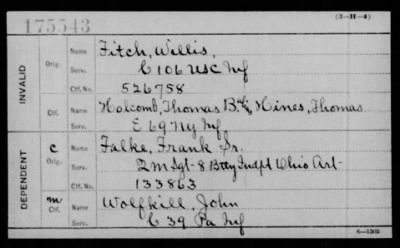 175543
(3—H—4)
INVALID
Orig.
Name Fitch, Willis,
Serv. C 106 USC Inf
Ctf. No. 526758
Ctf.
Name Holcomb, Thomas B. Hines, Thomas
Serv. E 69 Ny Inf
DEPENDENT
C
Orig.
Name Falke, Frank Sr.
Serv. 2 m Sgt - 8 Btty Indpt Ohio Art-
Ctf. No. 133863
m
Ctf.
Name Wolfkill, John
Serv. C 39 Pa Inf